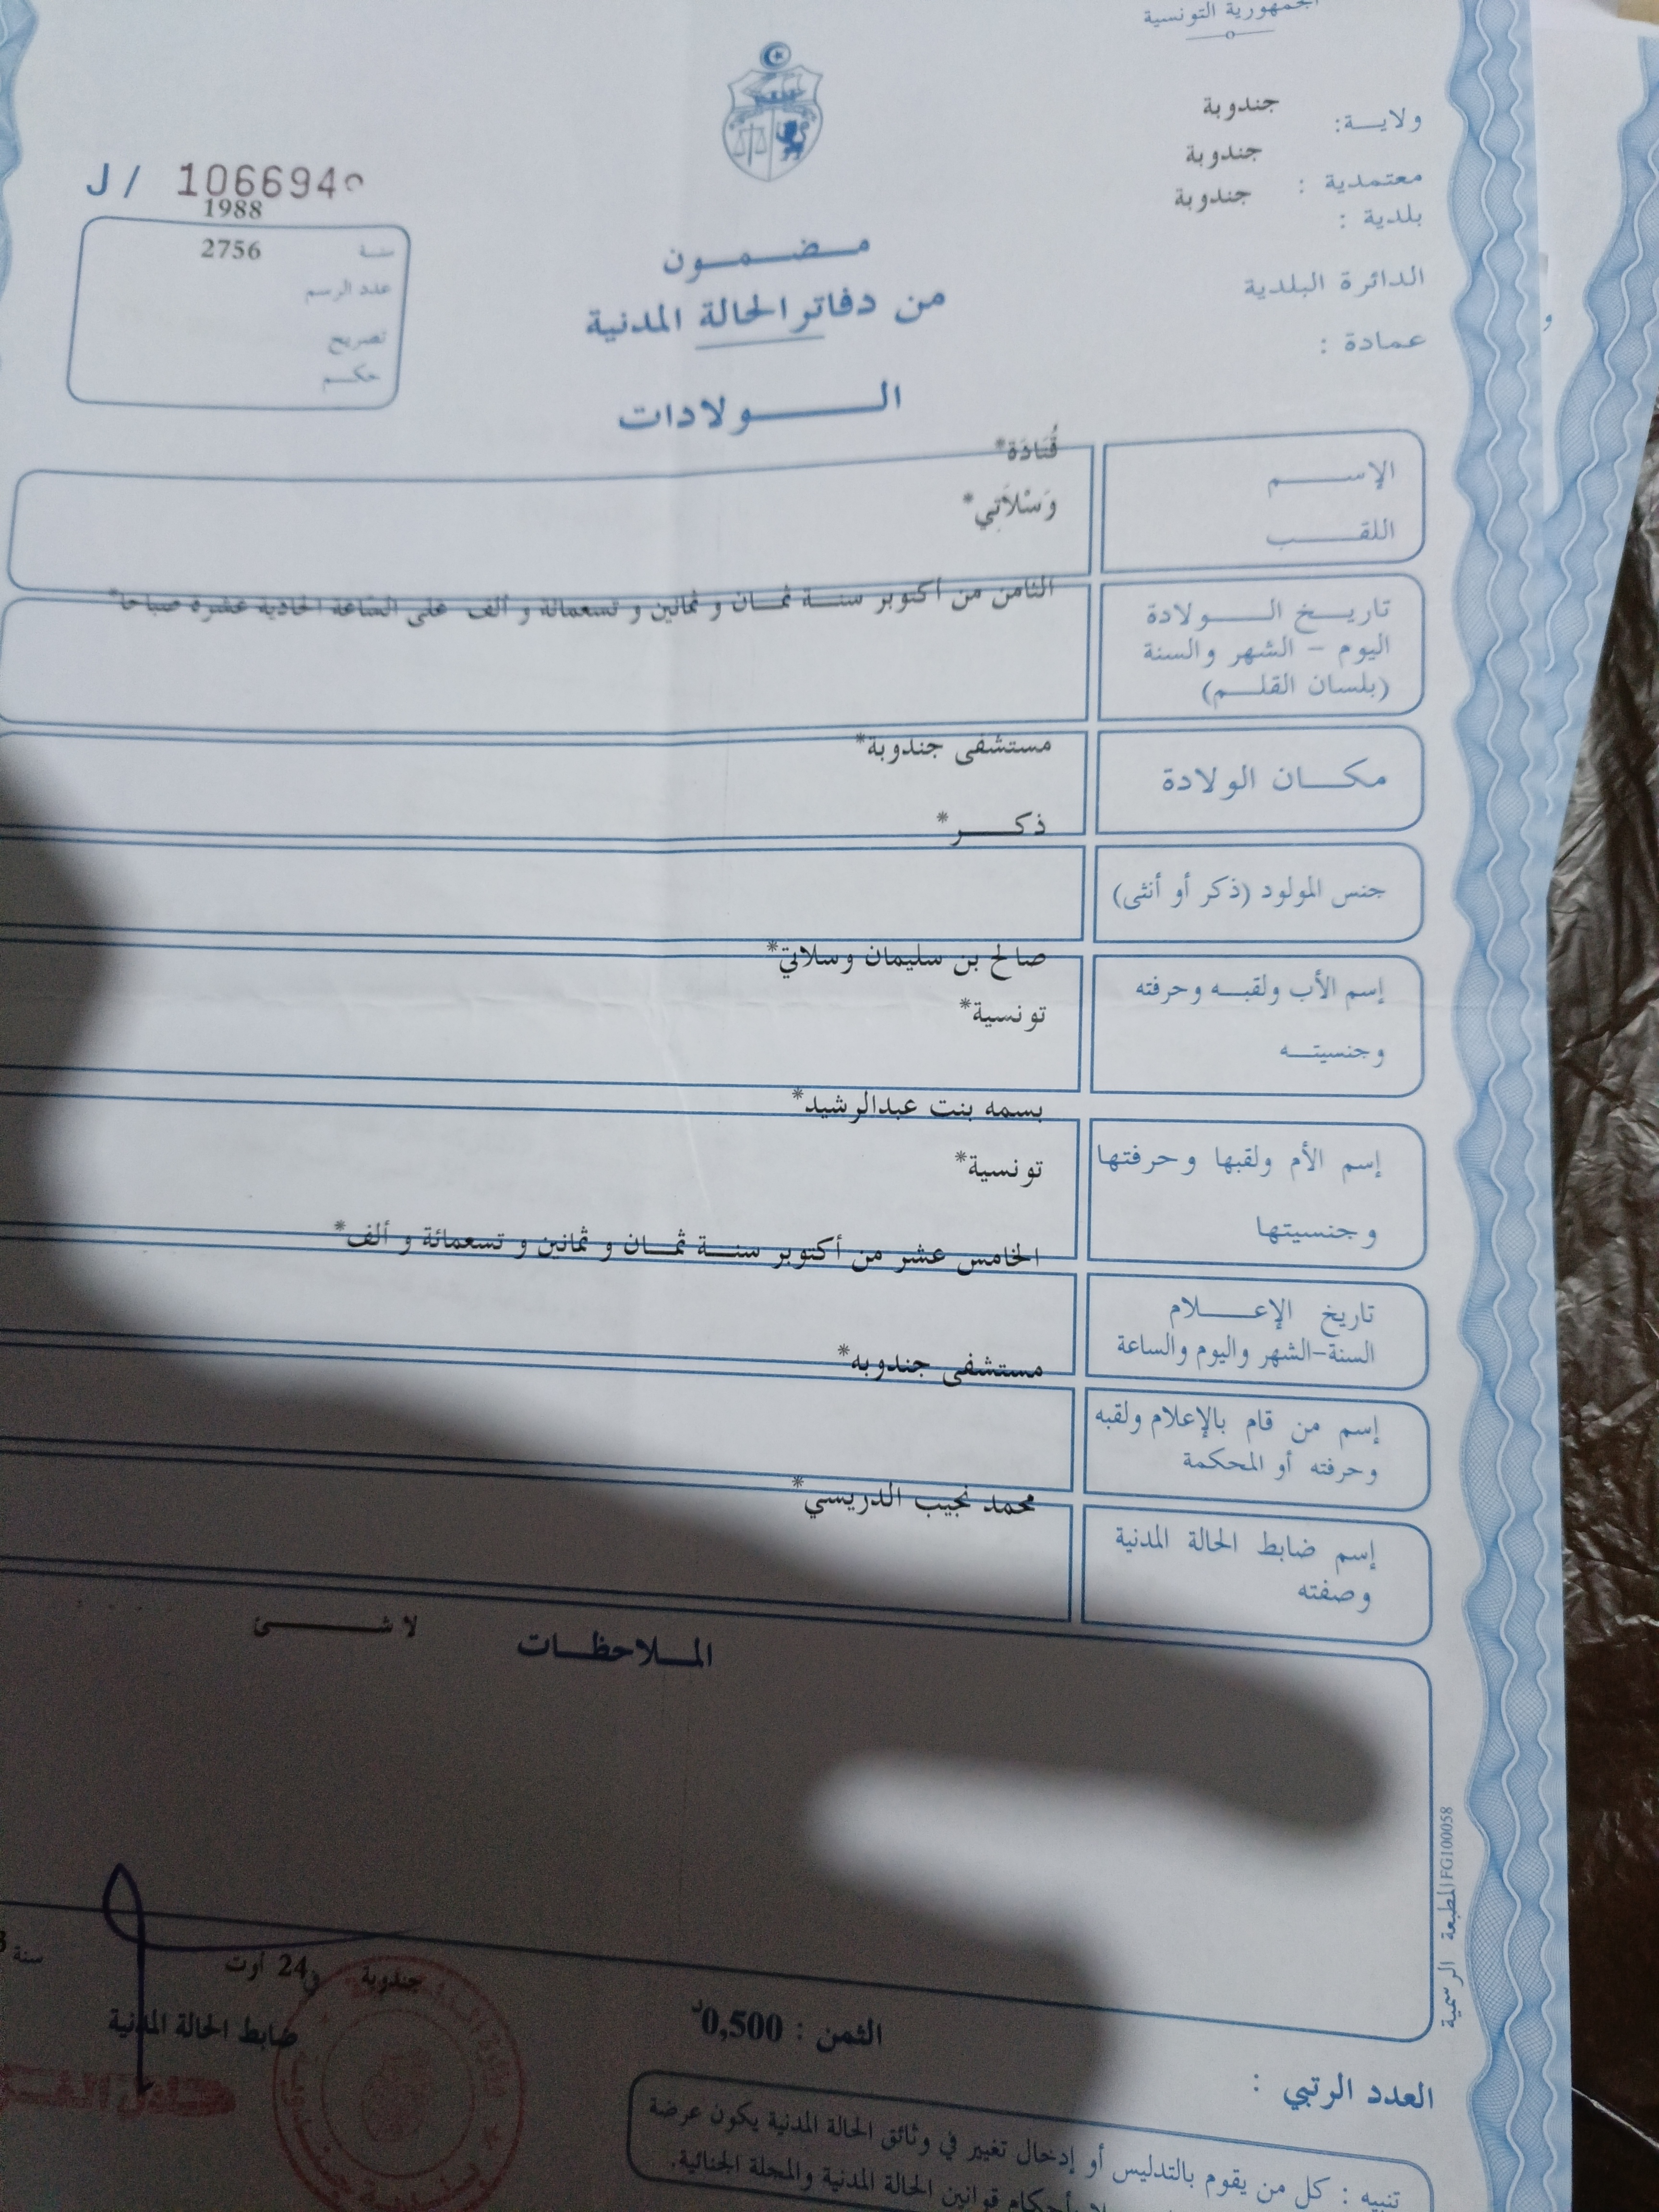 الجمهورية التونسية
ولاية: جندوبة
معتمدية : جندوبة
بلدية : جندوبة
الدائرة البلدية
عمادة :
J / 106694
1988
سنة 2756
عدد الرسم
تصريح
حكم
مضمون
من دفاتر الحالة المدنية
الولادات
الإسم قُتَادَة*
اللقب وَسْلاَتِي*
تاريخ الولادة الثامن من أكتوبر سنة ثمان و ثمانين و تسعمائة و ألف على الساعة الحادية عشرة صباحا*
اليوم - الشهر والسنة
(بلسان القلم)
مكان الولادة مستشفى جندوبة*
ذكر*
جنس المولود (ذكر أو أنثى)
إسم الأب ولقبه وحرفته صالح بن سليمان وسلاتي*
وجنسيته تونسية*
بسمه بنت عبدالرشيد*
إسم الأم ولقبها وحرفتها
وجنسيتها تونسية*
الخامس عشر من أكتوبر سنة ثمان و ثمانين و تسعمائة و ألف*
تاريخ الإعلام
السنة-الشهر واليوم والساعة
مستشفى جندوبه*
إسم من قام بالإعلام ولقبه
وحرفته أو المحكمة
محمد نجيب الدريسي*
إسم ضابط الحالة المدنية
وصفته
الملاحظات لا شئ
المطبعة الرسمية FG100058
جندوبة في 24 أوت سنة
ضابط الحالة المدنية
الثمن : 0,500د
العدد الرتبي :
تنبيه : كل من يقوم بالتدليس أو إدخال تغيير في وثائق الحالة المدنية يكون عرضة
بأحكام قوانين الحالة المدنية والمجلة الجنائية.